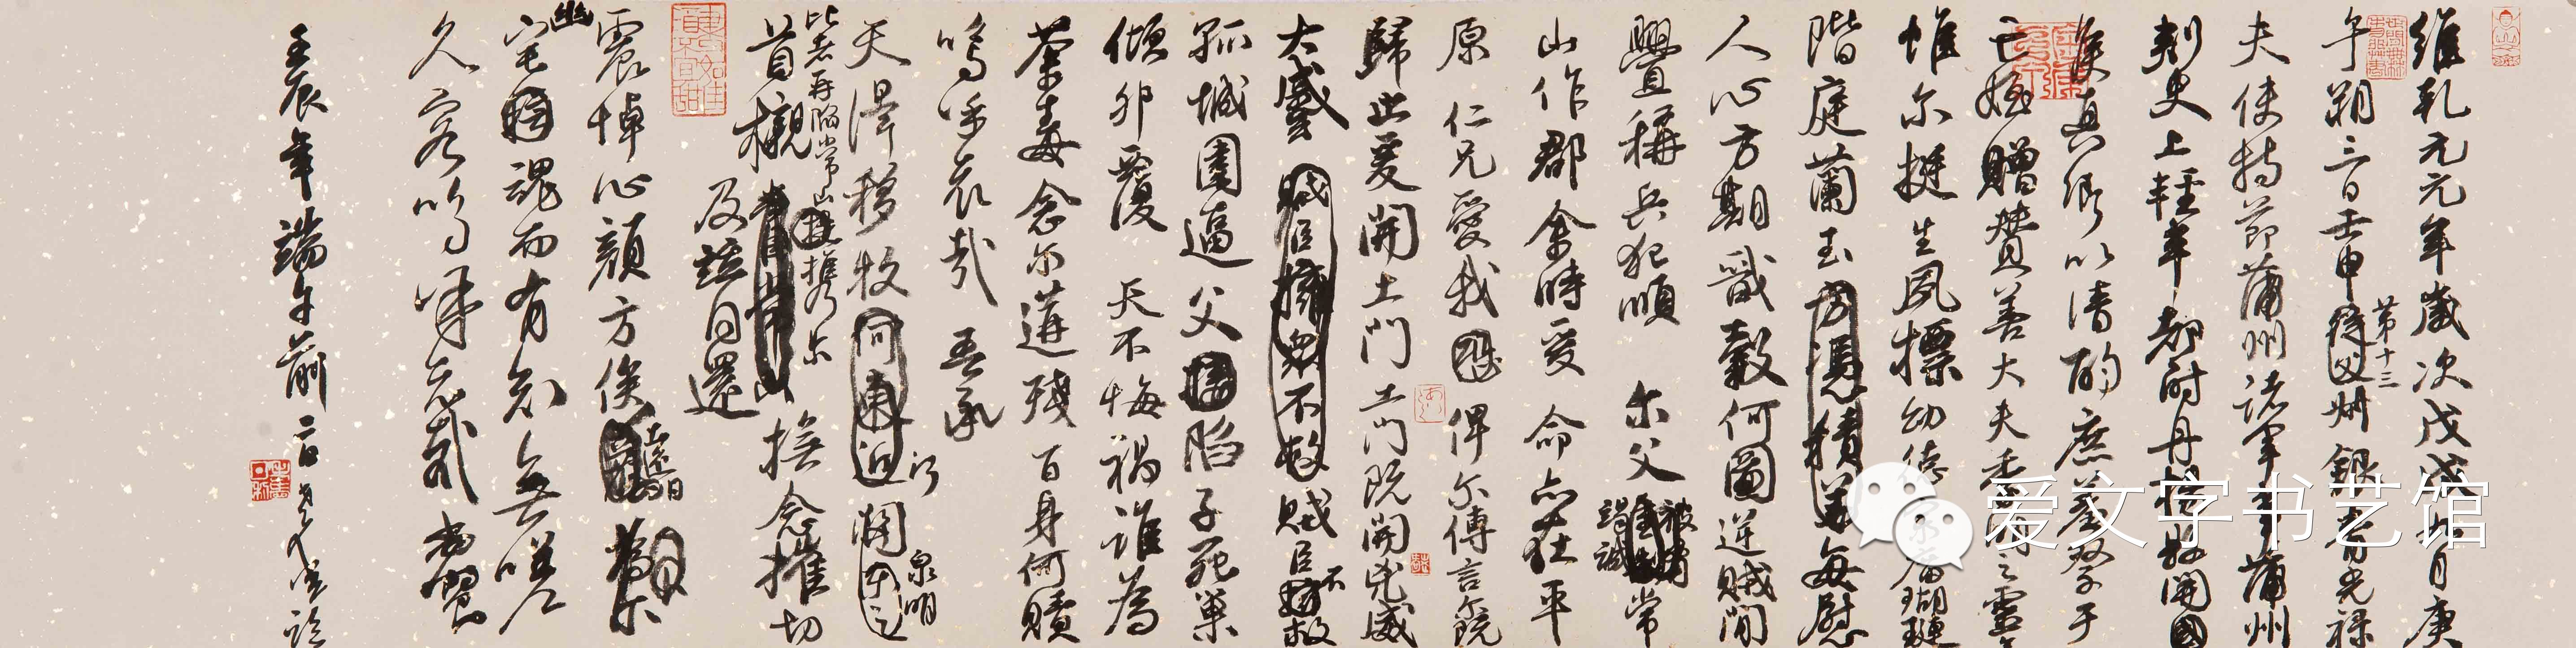 維乾元元年歲次戊戌九月庚
午朔三日壬申第十三從父州銀青光祿
夫使持節蒲州諸軍事蒲州
刺史上輕車都尉丹楊縣開國
侯真卿以清酌庶羞祭于
亡姪贈贊善大夫季明之靈
惟尔挺生夙標幼德宗廟瑚璉
階庭蘭玉方憑積善每慰
人心方期戩穀何圖逆賊閒
釁稱兵犯順 尔父竭誠常
山作郡余時受 命亦在平
原 仁兄愛我俾尔傳言尔既
歸止爰開土門土門既開凶威
大蹙賊臣擁眾不救賊臣不救
孤城圍逼 父陷子死巢
傾卵覆 天不悔禍誰為
荼毒念尔遘殘百身何贖
嗚呼哀哉 吾承
天澤移牧河東近河關泉明
比者再陷常山攜尔
首櫬及茲同還
撫念摧切
震悼心顏方俟遠日卜尔
幽宅魂而有知無嗟
久客嗚呼哀哉尚饗
壬辰年端午前一日
爱文字书艺馆